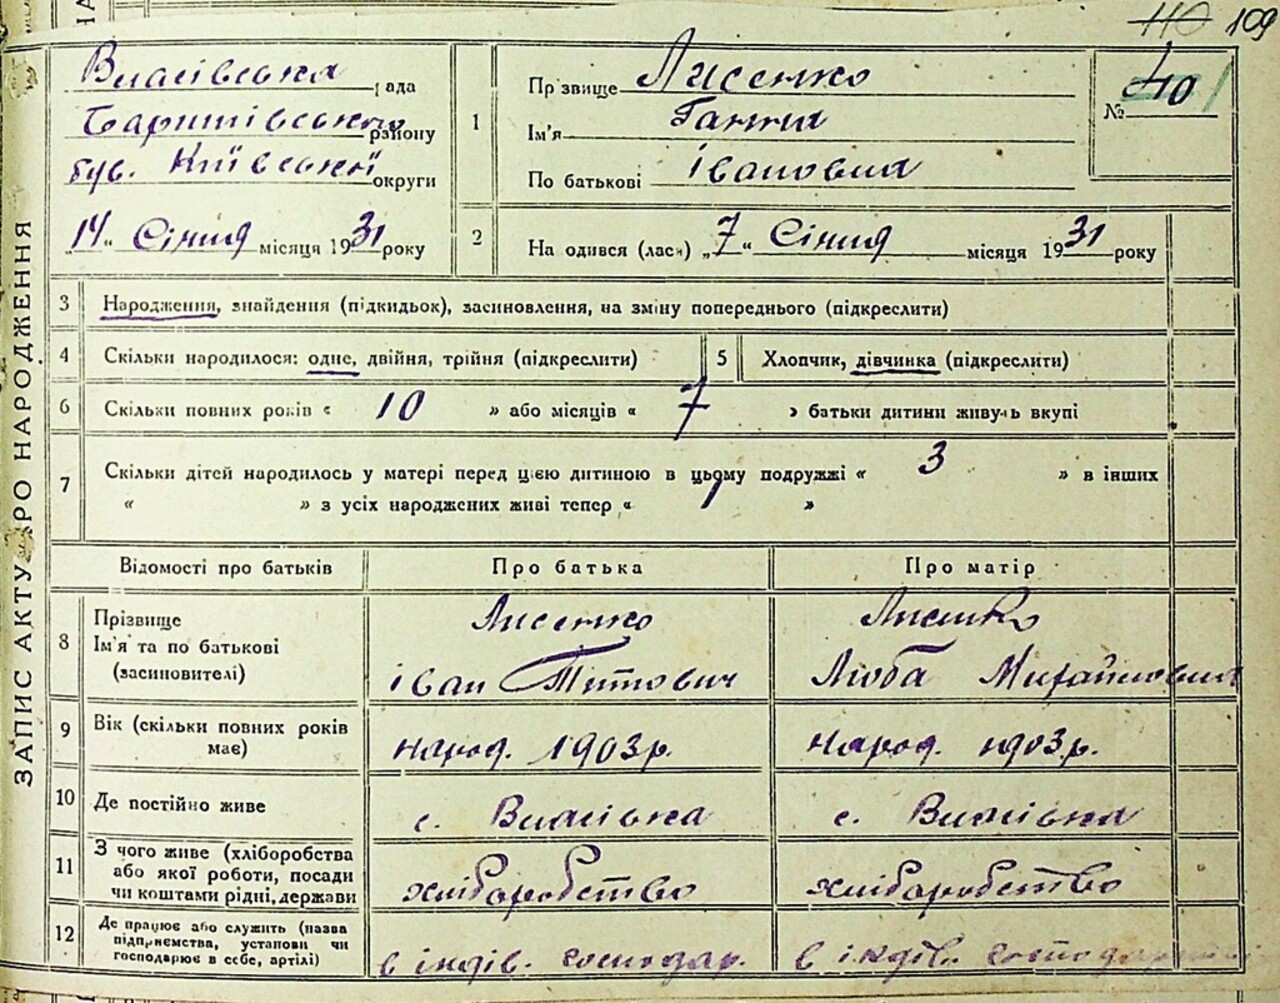 110 109
ЗАПИС АКТУ ПРО НАРОДЖЕННЯ
Власівська рада
Баришівського району
був. Київської округи
„14“ Січня місяця 1931 року
1
Прізвище Лисенко
Ім'я Ганна
По батькові Івановна
№ 40
2
На одився (лась) „7“ Січня місяця 1931 року
3 Народження, знайдення (підкидьок), засиновлення, на зміну попереднього (підкреслити)
4 Скільки народилося: одне, двійня, трійня (підкреслити)
5 Хлопчик, дівчинка (підкреслити)
6 Скільки повних років « 10 » або місяців « 7 » батьки дитини живуть вкупі
7 Скільки дітей народилось у матері перед цією дитиною в цьому подружжі « 3 » в інших
« » з усіх народжених живі тепер « 1 »
Відомості про батьків Про батька Про матір
8 Прізвище
Ім'я та по батькові
(засиновителі)
Лисенко
Іван Титович
Лисенко
Люба Михайловна
9 Вік (скільки повних років
має)
народ. 1903 р.
народ. 1903 р.
10 Де постійно живе с. Власівка с. Власівка
11 З чого живе (хліборобства
або якої роботи, посади
чи коштами рідні, держави
хліборобство хліборобство
12 Де працює або служить (назва
підприємства, установи чи
господарює в себе, артілі)
в індів. господар. в індів. господарстві